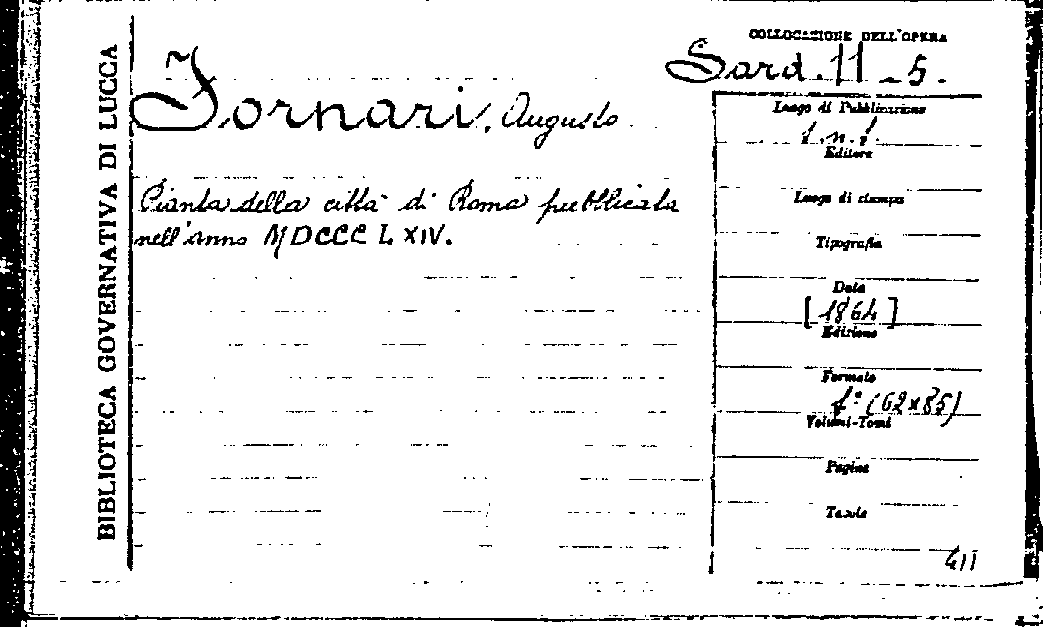 BIBLIOTECA GOVERNATIVA DI LUCCA
COLLOCAZIONE DELL'OPERA
Sard. 11 - 5.
Fornari, Augusto
Pianta della città di Roma pubblicata
nell'Anno MDCCCLXIV.
Luogo di Pubblicazione
s.n.t.
Editore
Luogo di stampa
Tipografia
Data
[1864]
Edizione
Formato
f.° (62x85)
Volumi-Tomi
Pagine
Tavole